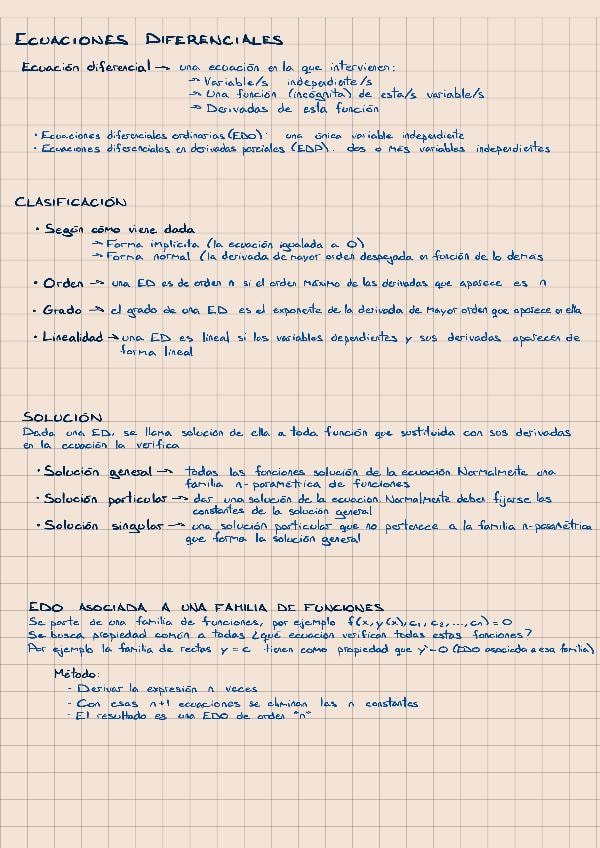 ECUACIONES DIFERENCIALES
Ecuación diferencial → una ecuación en la que intervienen:
→ Variable/s independiente/s
→ Una función (incógnita) de esta/s variable/s
→ Derivadas de esta función
• Ecuaciones diferenciales ordinarias (EDO): una única variable independiente
• Ecuaciones diferenciales en derivadas parciales (EDP): dos o más variables independientes
CLASIFICACIÓN
• Según cómo viene dada
→ Forma implícita (la ecuación igualada a 0)
→ Forma normal (la derivada de mayor orden despejada en función de lo demás
• Orden → una ED es de orden n si el orden máximo de las derivadas que aparece es n
• Grado → el grado de una ED es el exponente de la derivada de mayor orden que aparece en ella
• Linealidad → una ED es lineal si las variables dependientes y sus derivadas aparecen de
forma lineal
SOLUCIÓN
Dada una ED, se llama solución de ella a toda función que sustituida con sus derivadas
en la ecuación la verifica
• Solución general → todas las funciones solución de la ecuación. Normalmente una
familia n-paramétrica de funciones
• Solución particular → dar una solución de la ecuación. Normalmente deben fijarse las
constantes de la solución general
• Solución singular → una solución particular que no pertenece a la familia n-paramétrica
que forma la solución general
EDO ASOCIADA A UNA FAMILIA DE FUNCIONES
Se parte de una familia de funciones, por ejemplo f(x, y(x), c₁, c₂, ..., cn) = 0
Se busca propiedad común a todas ¿qué ecuación verifican todas estas funciones?
Por ejemplo la familia de rectas y = c tienen como propiedad que y' = 0 (EDO asociada a esa familia)
Método:
- Derivar la expresión n veces
- Con esas n+1 ecuaciones se eliminan las n constantes
- El resultado es una EDO de orden "n"